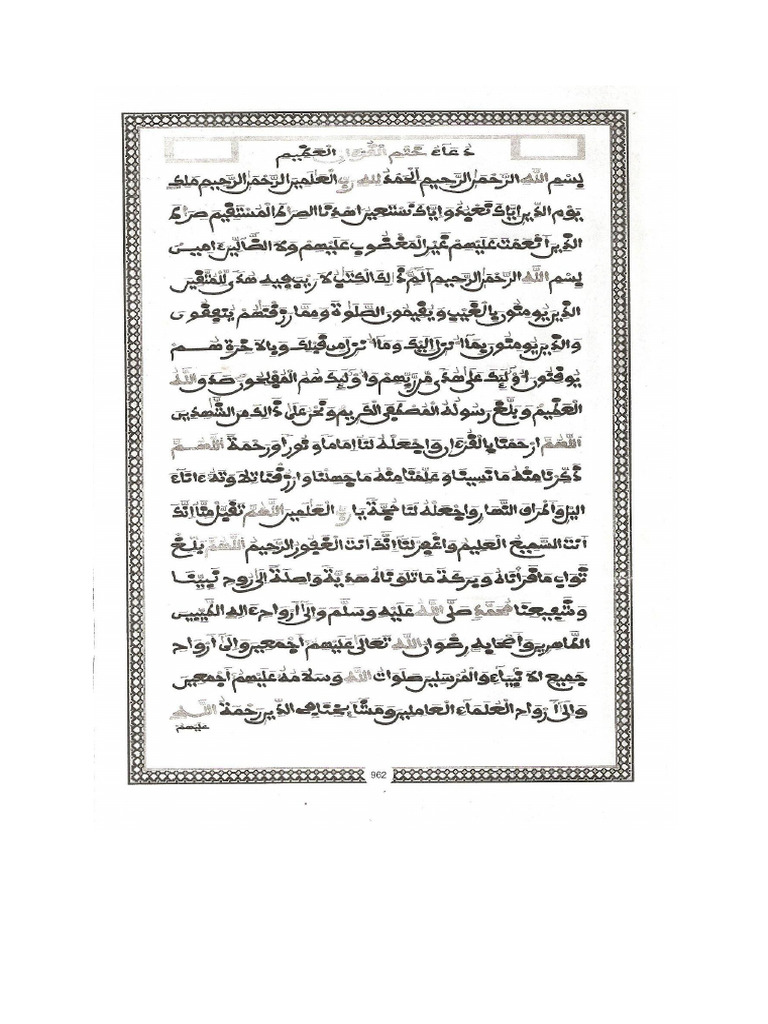 دُعَاءُ خَتْمِ الْقُرْءَانِ الْعَظِيمِ
بِسْمِ اللَّهِ الرَّحْمَٰنِ الرَّحِيمِ الْحَمْدُ لِلَّهِ رَبِّ الْعَٰلَمِينَ الرَّحْمَٰنِ الرَّحِيمِ مَلِكِ
يَوْمِ الدِّينِ إِيَّاكَ نَعْبُدُ وَإِيَّاكَ نَسْتَعِينُ اهْدِنَا الصِّرَاطَ الْمُسْتَقِيمَ صِرَاطَ
الَّذِينَ أَنْعَمْتَ عَلَيْهِمْ غَيْرِ الْمَغْضُوبِ عَلَيْهِمْ وَلَا الضَّالِّينَ ءَامِيسَ
بِسْمِ اللَّهِ الرَّحْمَٰنِ الرَّحِيمِ أَلَمِّ ذَٰلِكَ الْكِتَٰبُ لَا رَيْبَ فِيهِ هُدًى لِّلْمُتَّقِينَ
الَّذِينَ يُومِنُونَ بِالْغَيْبِ وَيُقِيمُونَ الصَّلَوٰةَ وَمِمَّا رَزَقْنَٰهُمْ يُنفِقُونَ
وَالَّذِينَ يُومِنُونَ بِمَا أُنزِلَ إِلَيْكَ وَمَا أُنزِلَ مِن قَبْلِكَ وَبِالْآخِرَةِ هُمْ
يُوقِنُونَ أُوْلَٰئِكَ عَلَىٰ هُدًى مِّن رَّبِّهِمْ وَأُوْلَٰئِكَ هُمُ الْمُفْلِحُونَ صَدَقَ اللَّهُ
الْعَظِيمُ وَبَلَّغَ رَسُولُهُ الْمُصْطَفَى الْكَرِيمُ وَنَحْنُ عَلَىٰ ذَٰلِكَ مِنَ الشَّٰهِدِينَ
اللَّهُمَّ ارْحَمْنَا بِالْقُرْءَانِ وَاجْعَلْهُ لَنَا إِمَامًا وَنُورًا وَرَحْمَةً اللَّهُمَّ
ذَكِّرْنَا مِنْهُ مَا نَسِينَا وَعَلِّمْنَا مِنْهُ مَا جَهِلْنَا وَارْزُقْنَا تِلَاوَتَهُ ءَانَاءَ
الَّيْلِ وَأَطْرَافَ النَّهَارِ وَاجْعَلْهُ لَنَا حُجَّةً يَا رَبَّ الْعَٰلَمِينَ اللَّهُمَّ تَقَبَّلْ مِنَّا إِنَّكَ
أَنْتَ السَّمِيعُ الْعَلِيمُ وَاغْفِرْ لَنَا إِنَّكَ أَنْتَ الْغَفُورُ الرَّحِيمُ اللَّهُمَّ بَلِّغْ
ثَوَابَ مَا قَرَأْنَاهُ وَبَرَكَةَ مَا تَلَوْنَاهُ هَدِيَّةً وَاصِلَةً إِلَىٰ رُوحِ نَبِيِّنَا
وَشَفِيعِنَا مُحَمَّدٍ صَلَّى اللَّهُ عَلَيْهِ وَسَلَّمَ وَإِلَىٰ أَرْوَاحِ ءَالِهِ الطَّيِّبِينَ
الطَّاهِرِينَ وَأَصْحَابِهِ رِضْوَانُ اللَّهِ تَعَالَىٰ عَلَيْهِمْ أَجْمَعِينَ وَإِلَىٰ أَرْوَاحِ
جَمِيعِ الْأَنْبِيَاءِ وَالْمُرْسَلِينَ صَلَوَاتُ اللَّهِ وَسَلَامُهُ عَلَيْهِمْ أَجْمَعِينَ
وَإِلَىٰ أَرْوَاحِ الْعُلَمَاءِ الْعَامِلِينَ وَمَشَائِخِنَا هِيَ الَّذِينَ رَحْمَةُ اللَّهِ
عَلَيْهِمْ
962